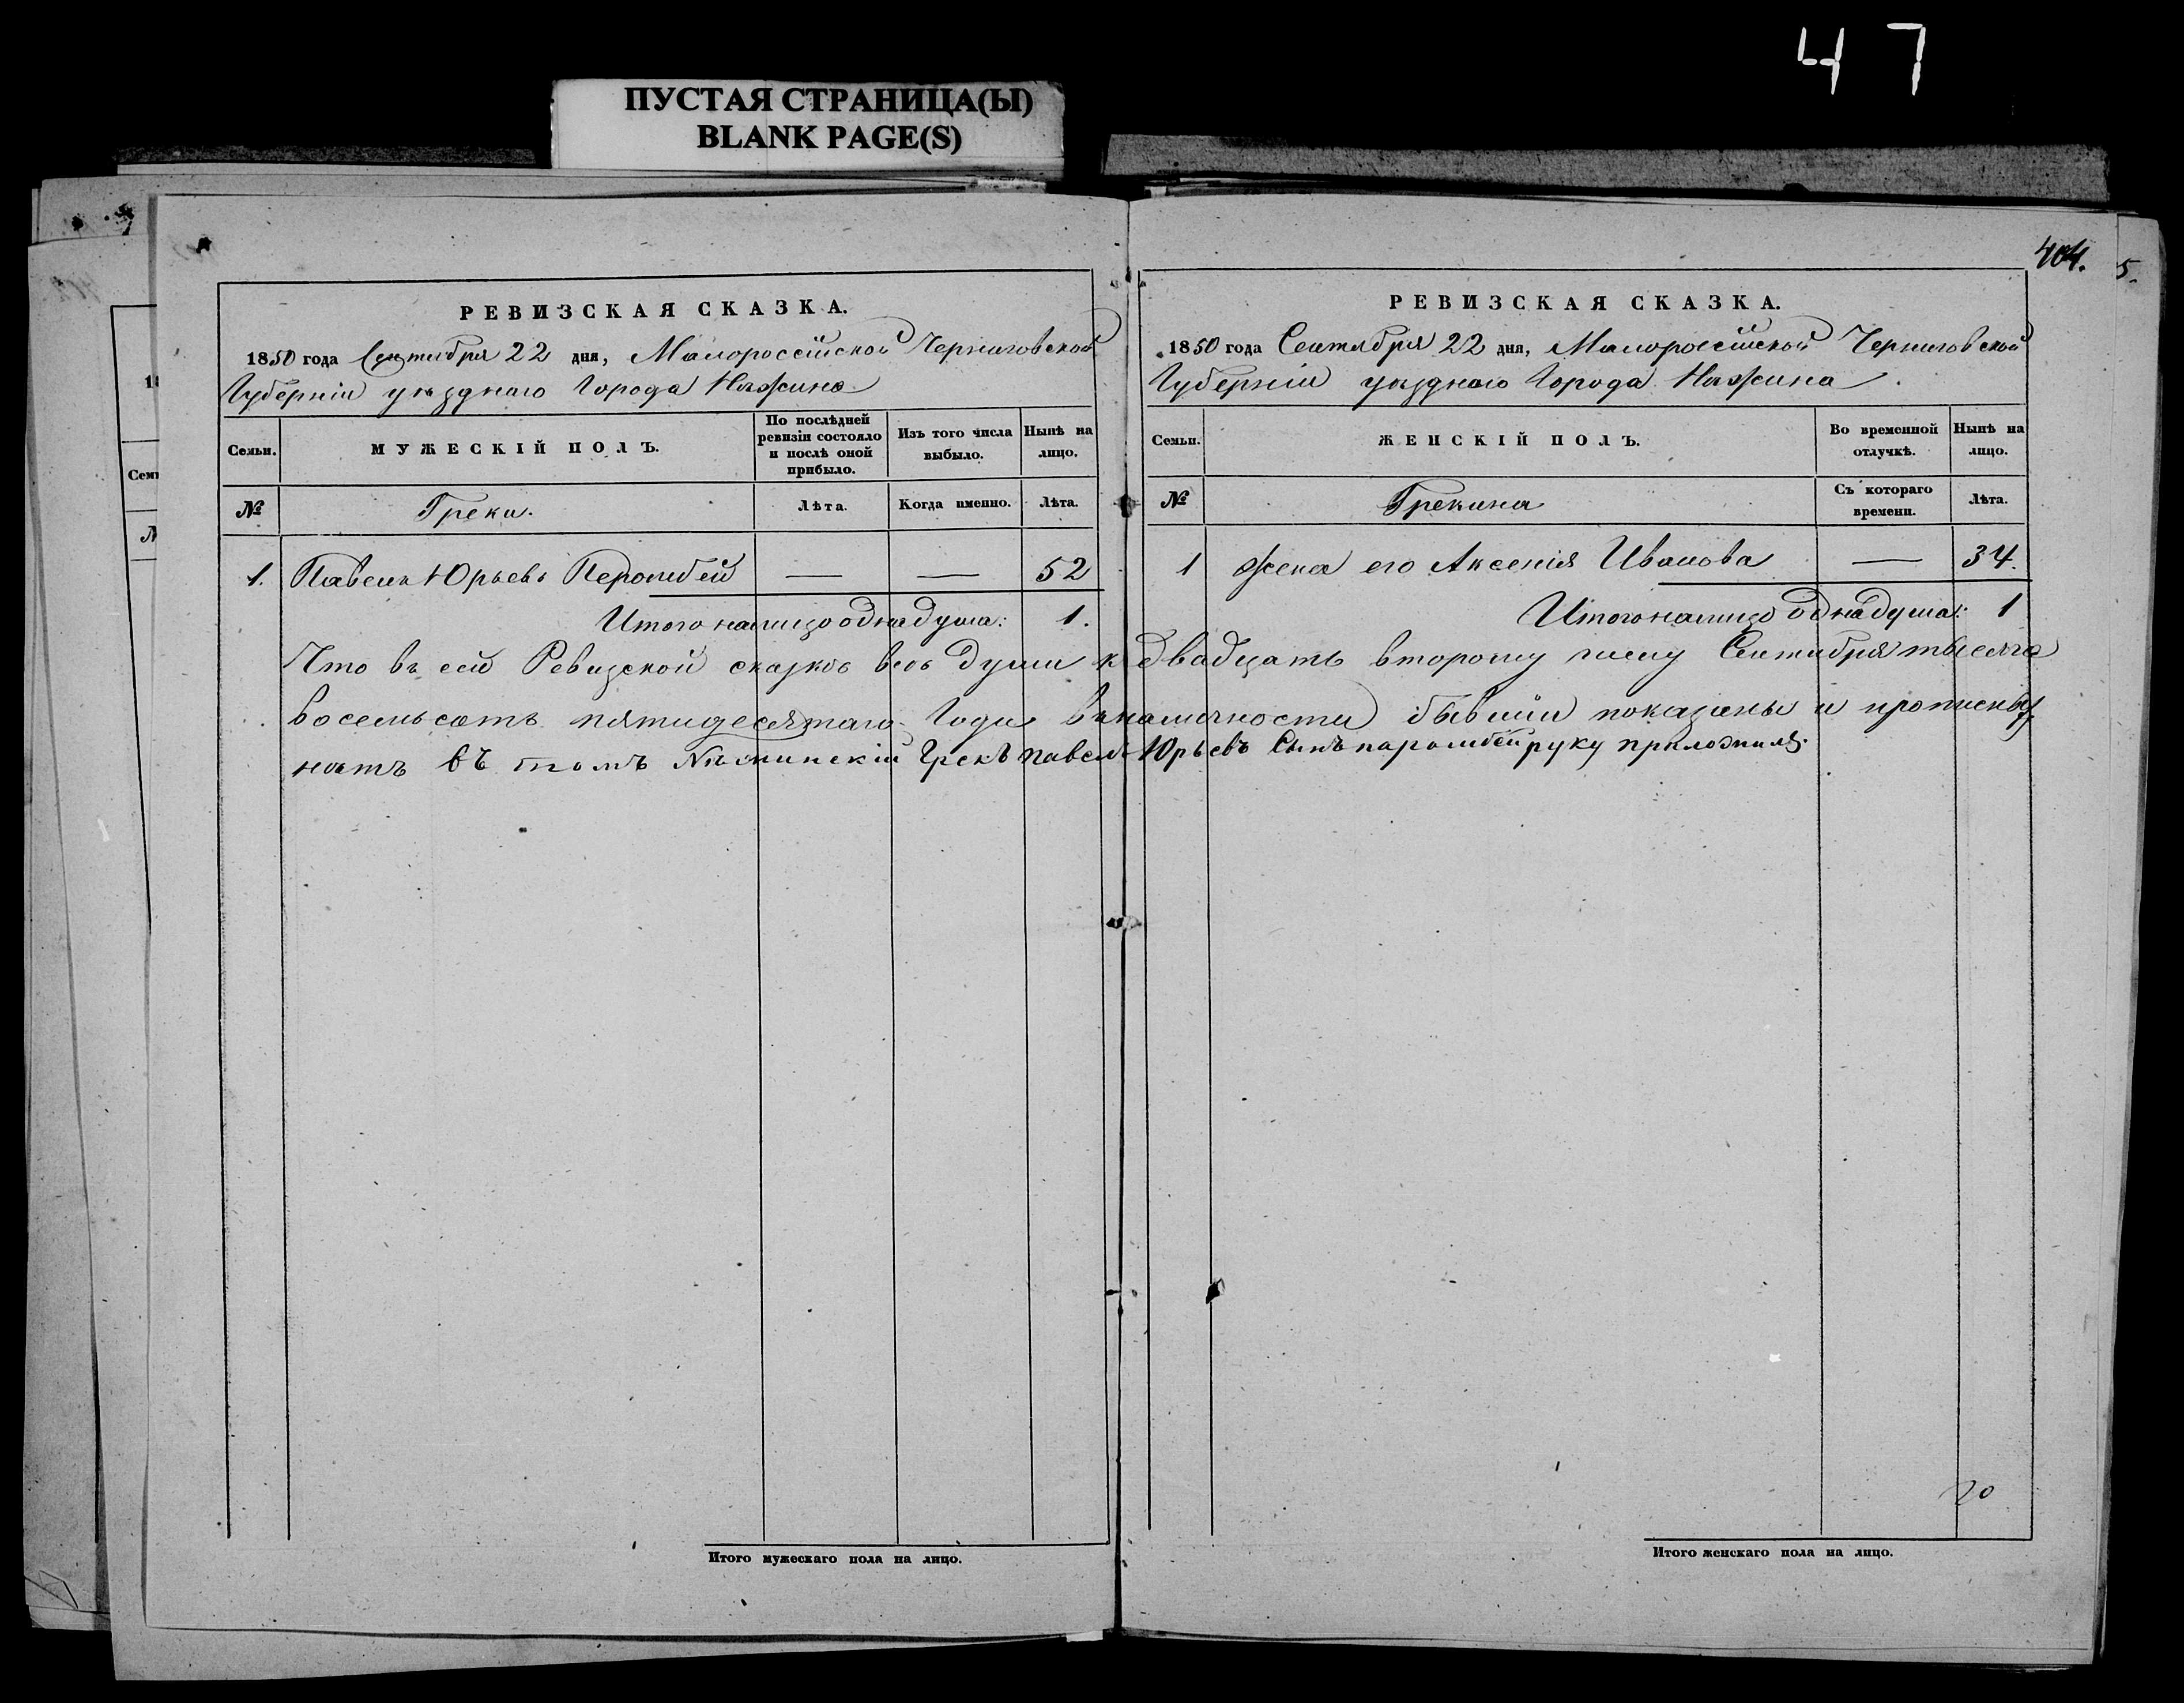 47
ПУСТАЯ СТРАНИЦА(Ы)
BLANK PAGE(S)
РЕВИЗСКАЯ СКАЗКА.
1850 года Сентября 22 дня, Малороссійской Черниговской
Губерніи уѣзднаго Города Нѣжина
Семьи.
МУЖЕСКІЙ ПОЛЪ.
По послѣдней ревизіи состояло и послѣ оной прибыло.
Изъ того числа выбыло.
Нынѣ на лицо.
№
Греки.
Лѣта.
Когда именно.
Лѣта.
1. Павелъ Юрьевъ — — 52
Итого налицо одна душа: 1.
404.
5.
РЕВИЗСКАЯ СКАЗКА.
1850 года Сентября 22 дня, Малороссійской Черниговской
Губерніи уѣзднаго Города Нѣжина.
Семьи.
ЖЕНСКІЙ ПОЛЪ.
Во временной отлучкѣ.
Нынѣ на лицо.
№
Грекина
Съ котораго времени.
Лѣта.
1 жена его Аксенія Иванова — 34.
Итого налицо одна душа: 1
Что въ сей Ревизской сказкѣ всѣ души к двадцать второму числу Сентября тысяча
восемьсотъ пятидесятаго Года въ наличности бывшіи показаны и прописных
нѣтъ въ томъ Нѣжинскій Грекъ павелъ Юрьевъ Сынъ руку приложилъ.
20
Итого мужескаго пола на лицо.
Итого женскаго пола на лицо.